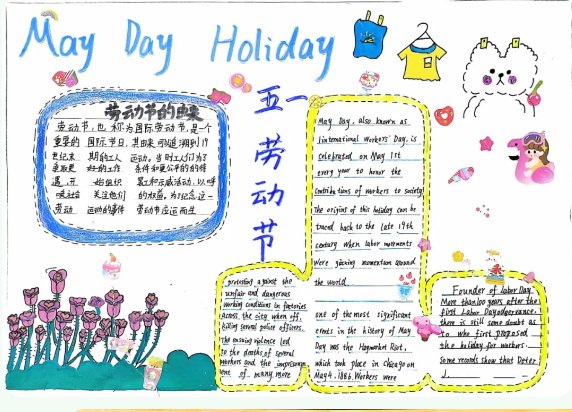 May Day Holiday
五一
劳动节
劳动节的由来
劳动节,也称为国际劳动节,是一个
重要的国际节日,其由来可追溯到19
世纪末期的工人运动。当时工人们为了
争取更好的工作条件和更公平的待
遇,开始组织罢工和示威活动,以呼
吁社会关注他们的权益。为了纪念这一
劳动运动的事件劳动节应运而生
May Day, also known as
International Workers' Day, is
celebrated on May 1st
every year to honor the
contributions of workers to society
The origins of this holiday can be
traced back to the late 19th
century when labor movements
were gaining momentum around
the world
one of the most significant
events in the history of May
Day was the Haymarket Riot,
which took place in Chicago on
May 4, 1886. Workers were
protesting against the
unfair and dangerous
working conditions in factories
across the city when
killing several police officers.
The ensuing violence led
to the deaths of several
workers and the
one of many more
Founder of Labor Day
More than 100 years after the
first Labor Day
there is still some doubt as
to who first proposed
the holiday for workers.
Some records show that Peter
J.